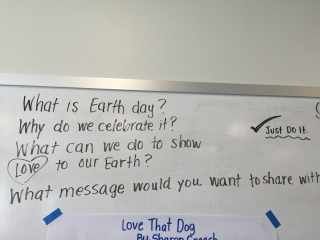 What is Earth day?
Why do we celebrate it?
Just Do It.
What can we do to show
Love to our Earth?
What message would you want to share with
Love That Dog
By Sharon Creech